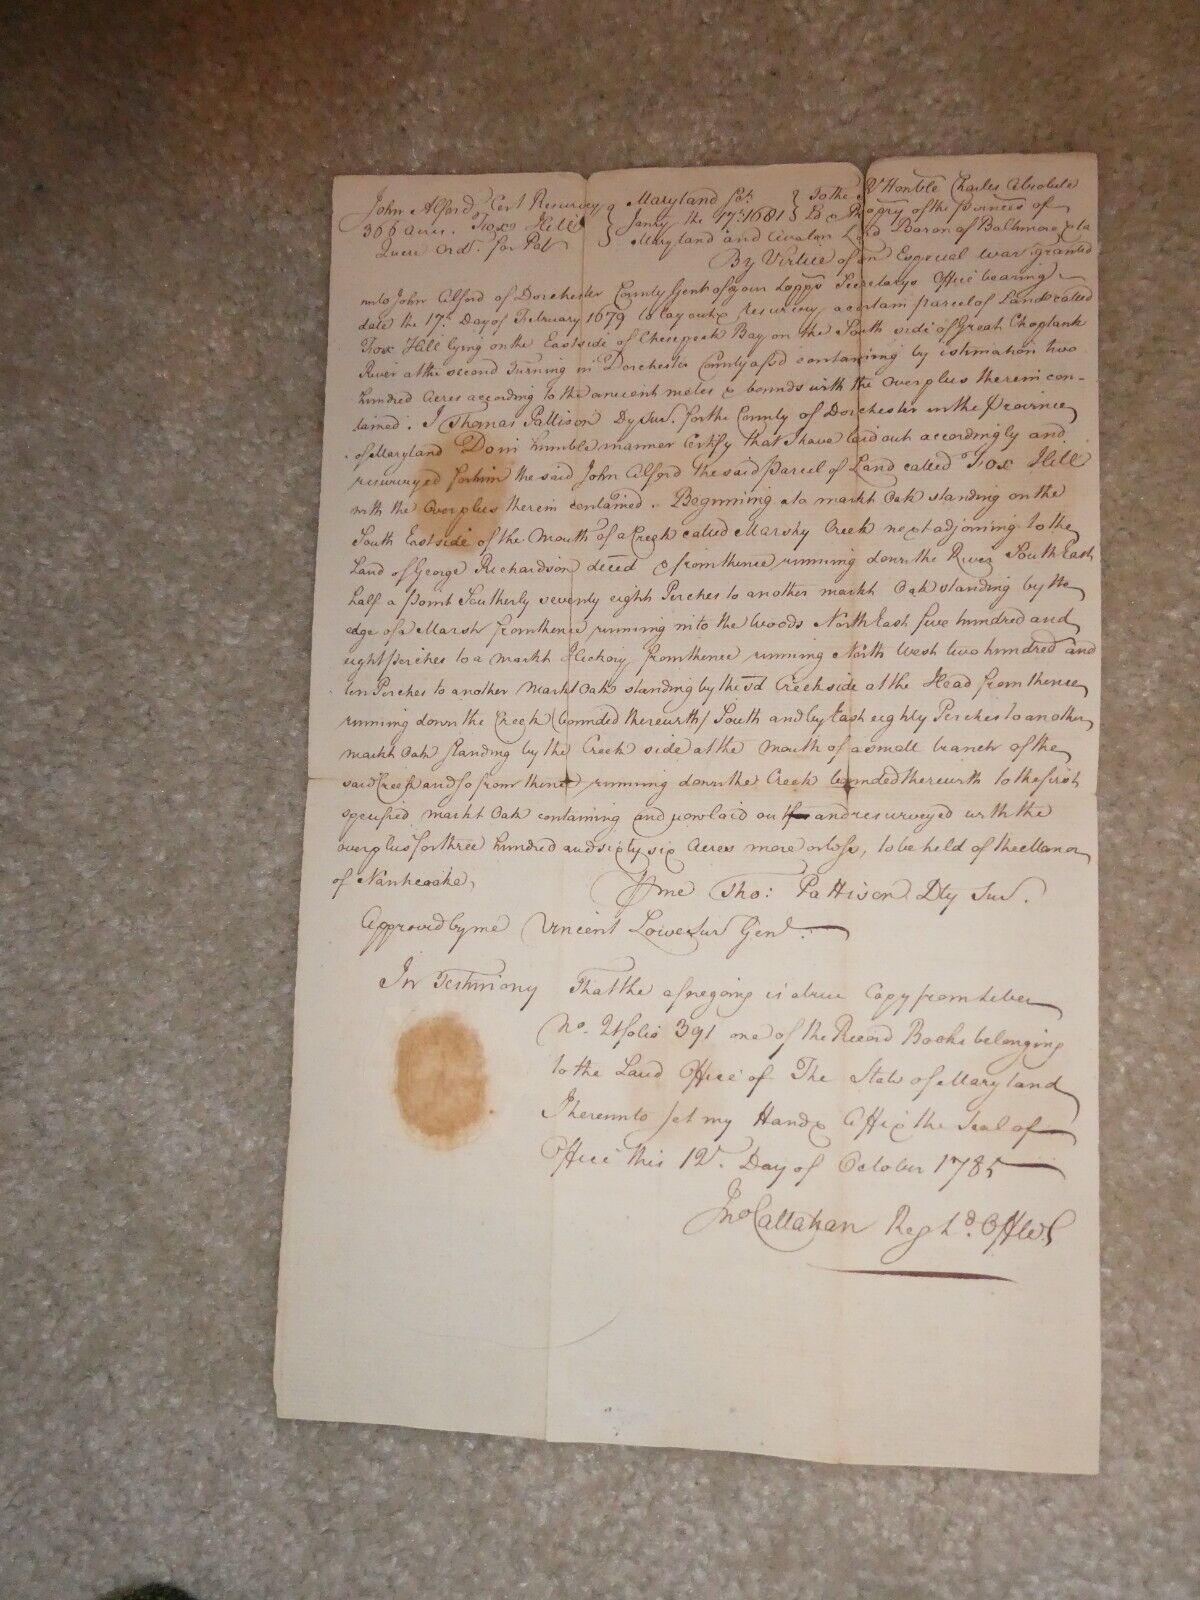 John Alford Cert Resurvey } Maryland Sct } To the Rt Honble Charles Absolute
366 Acres. Fox Hill } Janry the 17th 1681 } Ld & Propry of the Province of
Quere Ordd. for Pat } Maryland and Avalon Lord Baron of Baltimore &ca
By Virtue of an Especial war granted
unto John Alford of Dorchester County Gent of your Lopps Secretarys Office bearing
date the 17th Day of February 1679 to lay out & resurvey a certain parcel of Land called
Fox Hill lying on the East side of Chesepeak Bay on the South side of Great Choptank
River at the second Turning in Dorchester County afsd containing by estimation two
hundred Acres according to the ancient metes & bounds with the Overplus therein con-
tained. I Thomas Pattison Dy Sur. for the County of Dorchester in the Province
of Maryland Do in humble manner Certify that I have laid out accordingly and
resurveyed for him the said John Alford the said Parcel of Land called Fox Hill
with the Overplus therein contained. Beginning at a markt Oak standing on the
South East side of the Mouth of a Creek called Marshy Creek next adjoining to the
Land of George Richardson deced & from thence running down the River South East
half a point Southerly seventy eight Perches to another markt Oak standing by the
edge of a Marsh from thence running into the Woods North East five hundred and
eight perches to a markt Hickory from thence running North West two hundred and
ten Perches to another Markt Oak standing by the sd Creek side at the Head from thence
running down the Creek (bounded therewith) South and by East eighty Perches to another
markt Oak standing by the Creek side at the Mouth of a small branch of the
said Creek and so from thence running down the Creek bounded therewith to the first
specified markt Oak containing and now laid out and resurveyed with the
overplus for three hundred and sixty six Acres more or less, to be held of the Manor
of Nanticoke,
P me Tho: Pattison Dty Sur.
Approved by me Vincent Lowe Sur Genl.
In Testimony That the aforegoing is a true Copy from Liber
No. 21 folio 391 one of the Record Books belonging
to the Land Office of The State of Maryland
I hereunto set my Hand & Affix the Seal of
Office this 12th. Day of October 1785
Jno Callahan Reg Ld. Off W.S